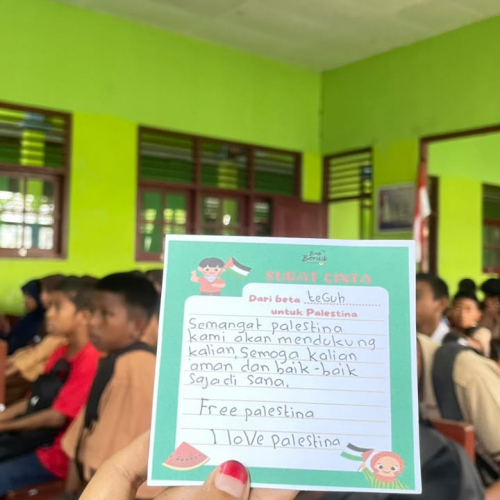 SURAT CINTA
Dari beta teguh
untuk Palestina
Semangat palestina
kami akan mendukung
kalian, Semoga kalian
aman dan baik-baik
saja di sana.
Free palestina
I love palestina